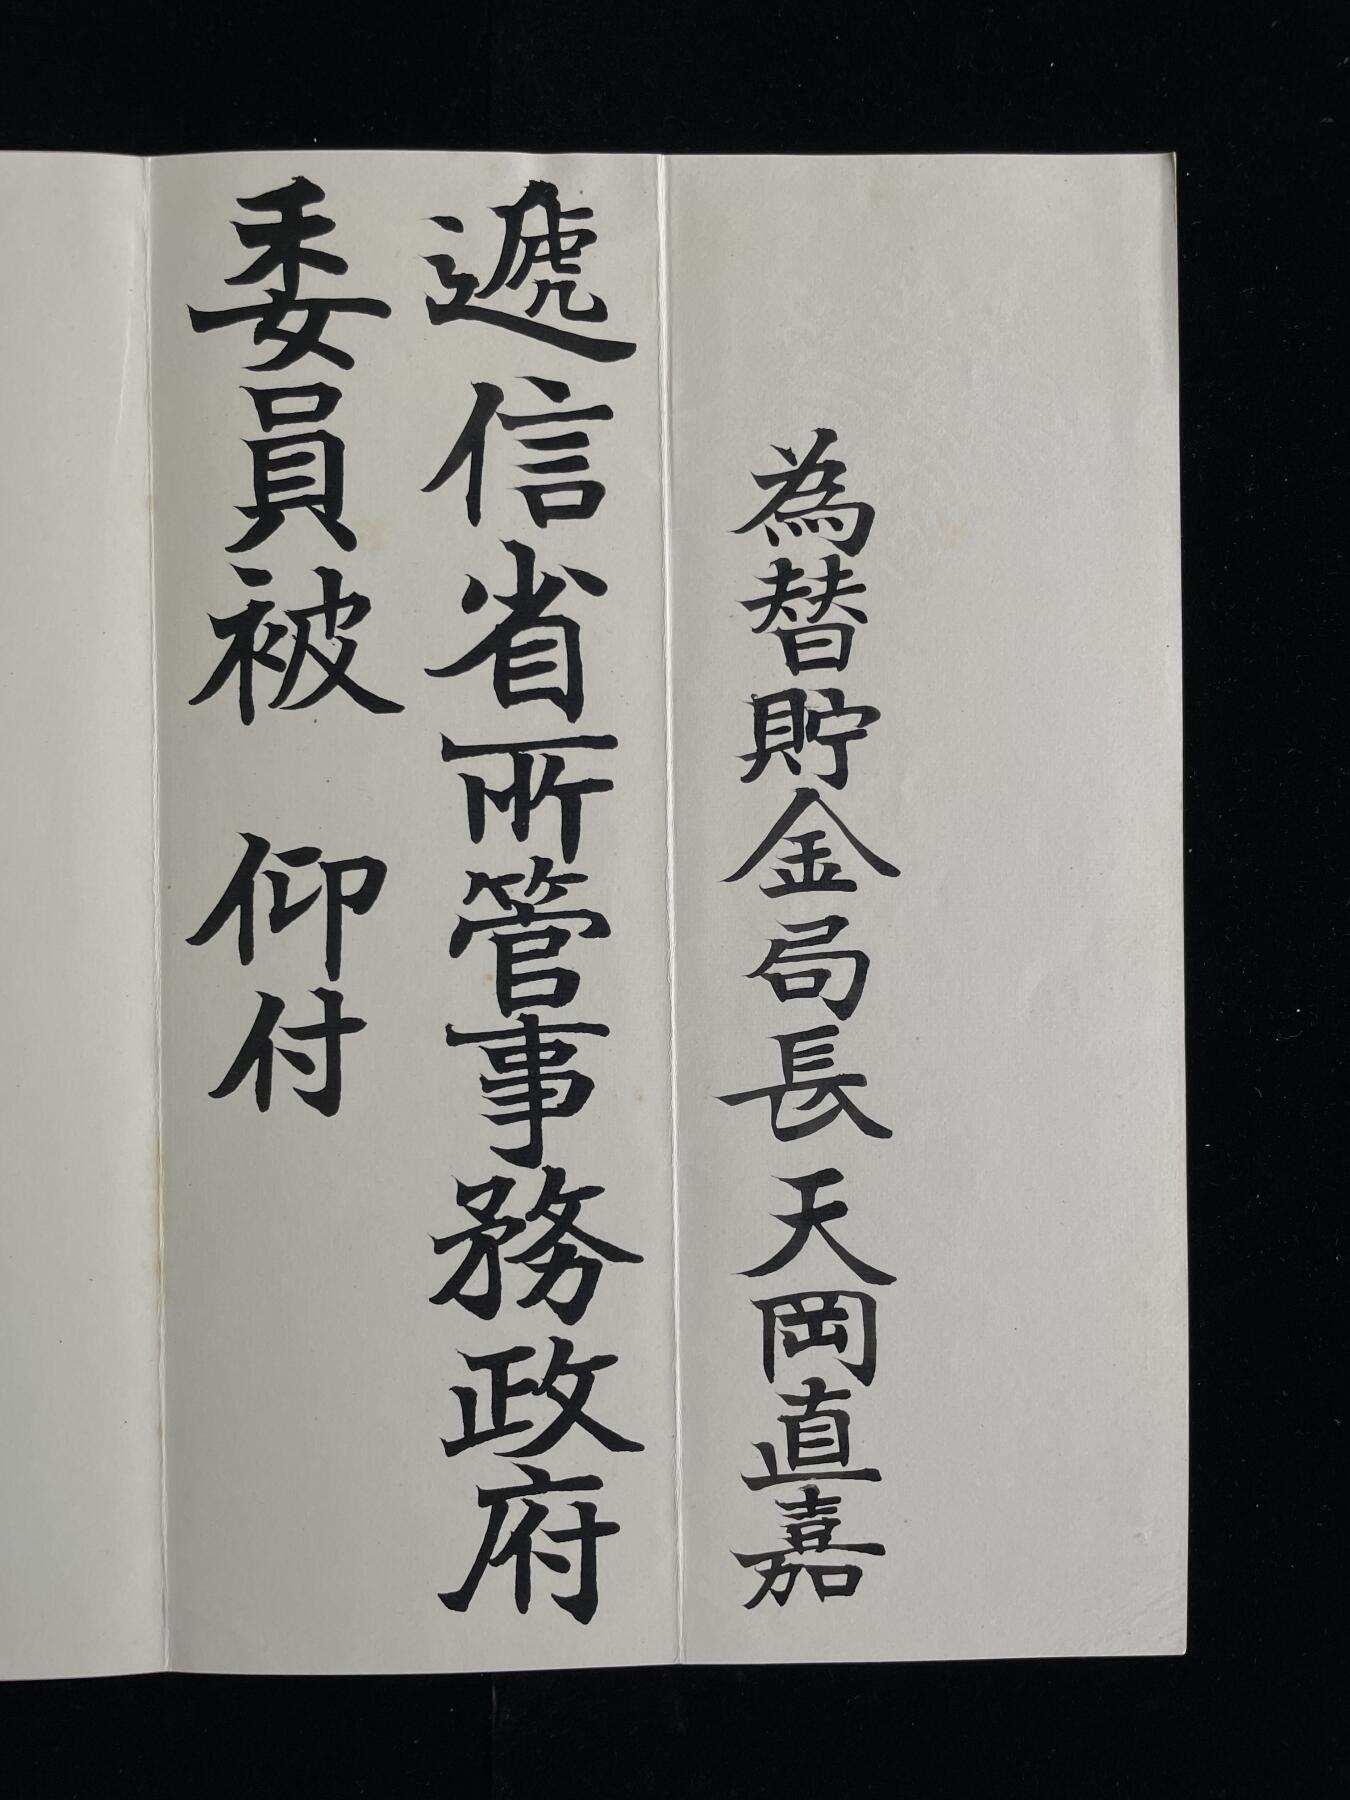 為替貯金局長天岡直嘉
遞信省所管事務政府
委員被 仰付